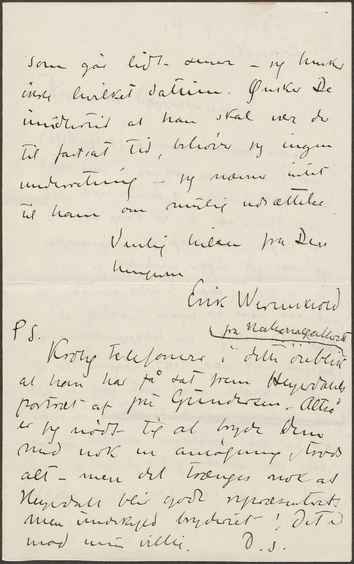 som går lidt senere – jeg husker
ikke hvilket datum. Ønsker De
imidlertid at han skal være der
til fastsat tid, behøver jeg ingen
underretning – jeg nævner intet
til ham om mulig udsættelse.
Venlig hilsen fra Deres
hengivne
Erik Werenskiold
P.S.
Krohg telefonerer i dette øieblik
at han har få sat frem Heyerdahls
portræt af frk Gundersen. Altså
er jeg nødt til at bryde Dem
med nok en anmodning, trods
alt – men det trænges nok at
Heyerdahl blir godt repræsenteret.
Men undskyld bryderiet! Det er
mod min vilje. D.S.